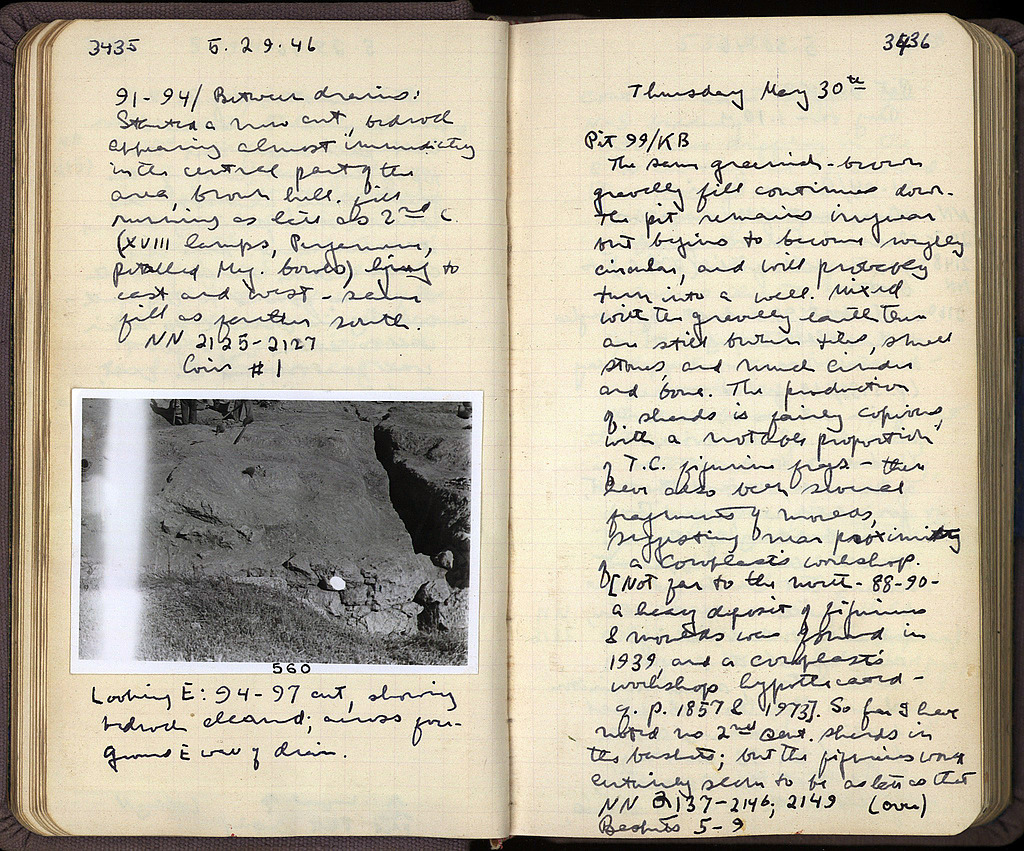 3435 5.29.46
91-94/ Between drains:
Started a new cut, bedrock
appearing almost immediately
in the central part of the
area, brown hell. fill
running as late as 2nd C.
(XVIII lamps, Pergamene,
Meg. bowls) lying to
east and west - same
fill as further south.
NN 2125-2127
Coin #1
560
Looking E: 94-97 cut, showing
bedrock cleared; across fore-
ground E wall of drain.
3436
Thursday May 30th
Pit 99/KB
The same greenish-brown
gravelly fill continues down.
The pit remains irregular
but begins to become roughly
circular, and will probably
turn into a well. Mixed
with the gravelly earth there
are still broken tiles, small
stones, and much cinder
and bone. The production
of sherds is fairly copious,
with a notable proportion
of T.C. figurine frgs - there
have also been several
fragments of moulds,
suggesting near proximity
of a coroplast's workshop.
[Not far to the north - 88-90-
a heavy deposit of figurines
& moulds was found in
1939, and a coroplast's
workshop hypothecated -
cf. p. 1857 & 1973]. So far I have
noted no 2nd cent. sherds in
the baskets; but the figurines
certainly seem to be as late as that
NN 2137-2146; 2149 (over)
Baskets 5-9